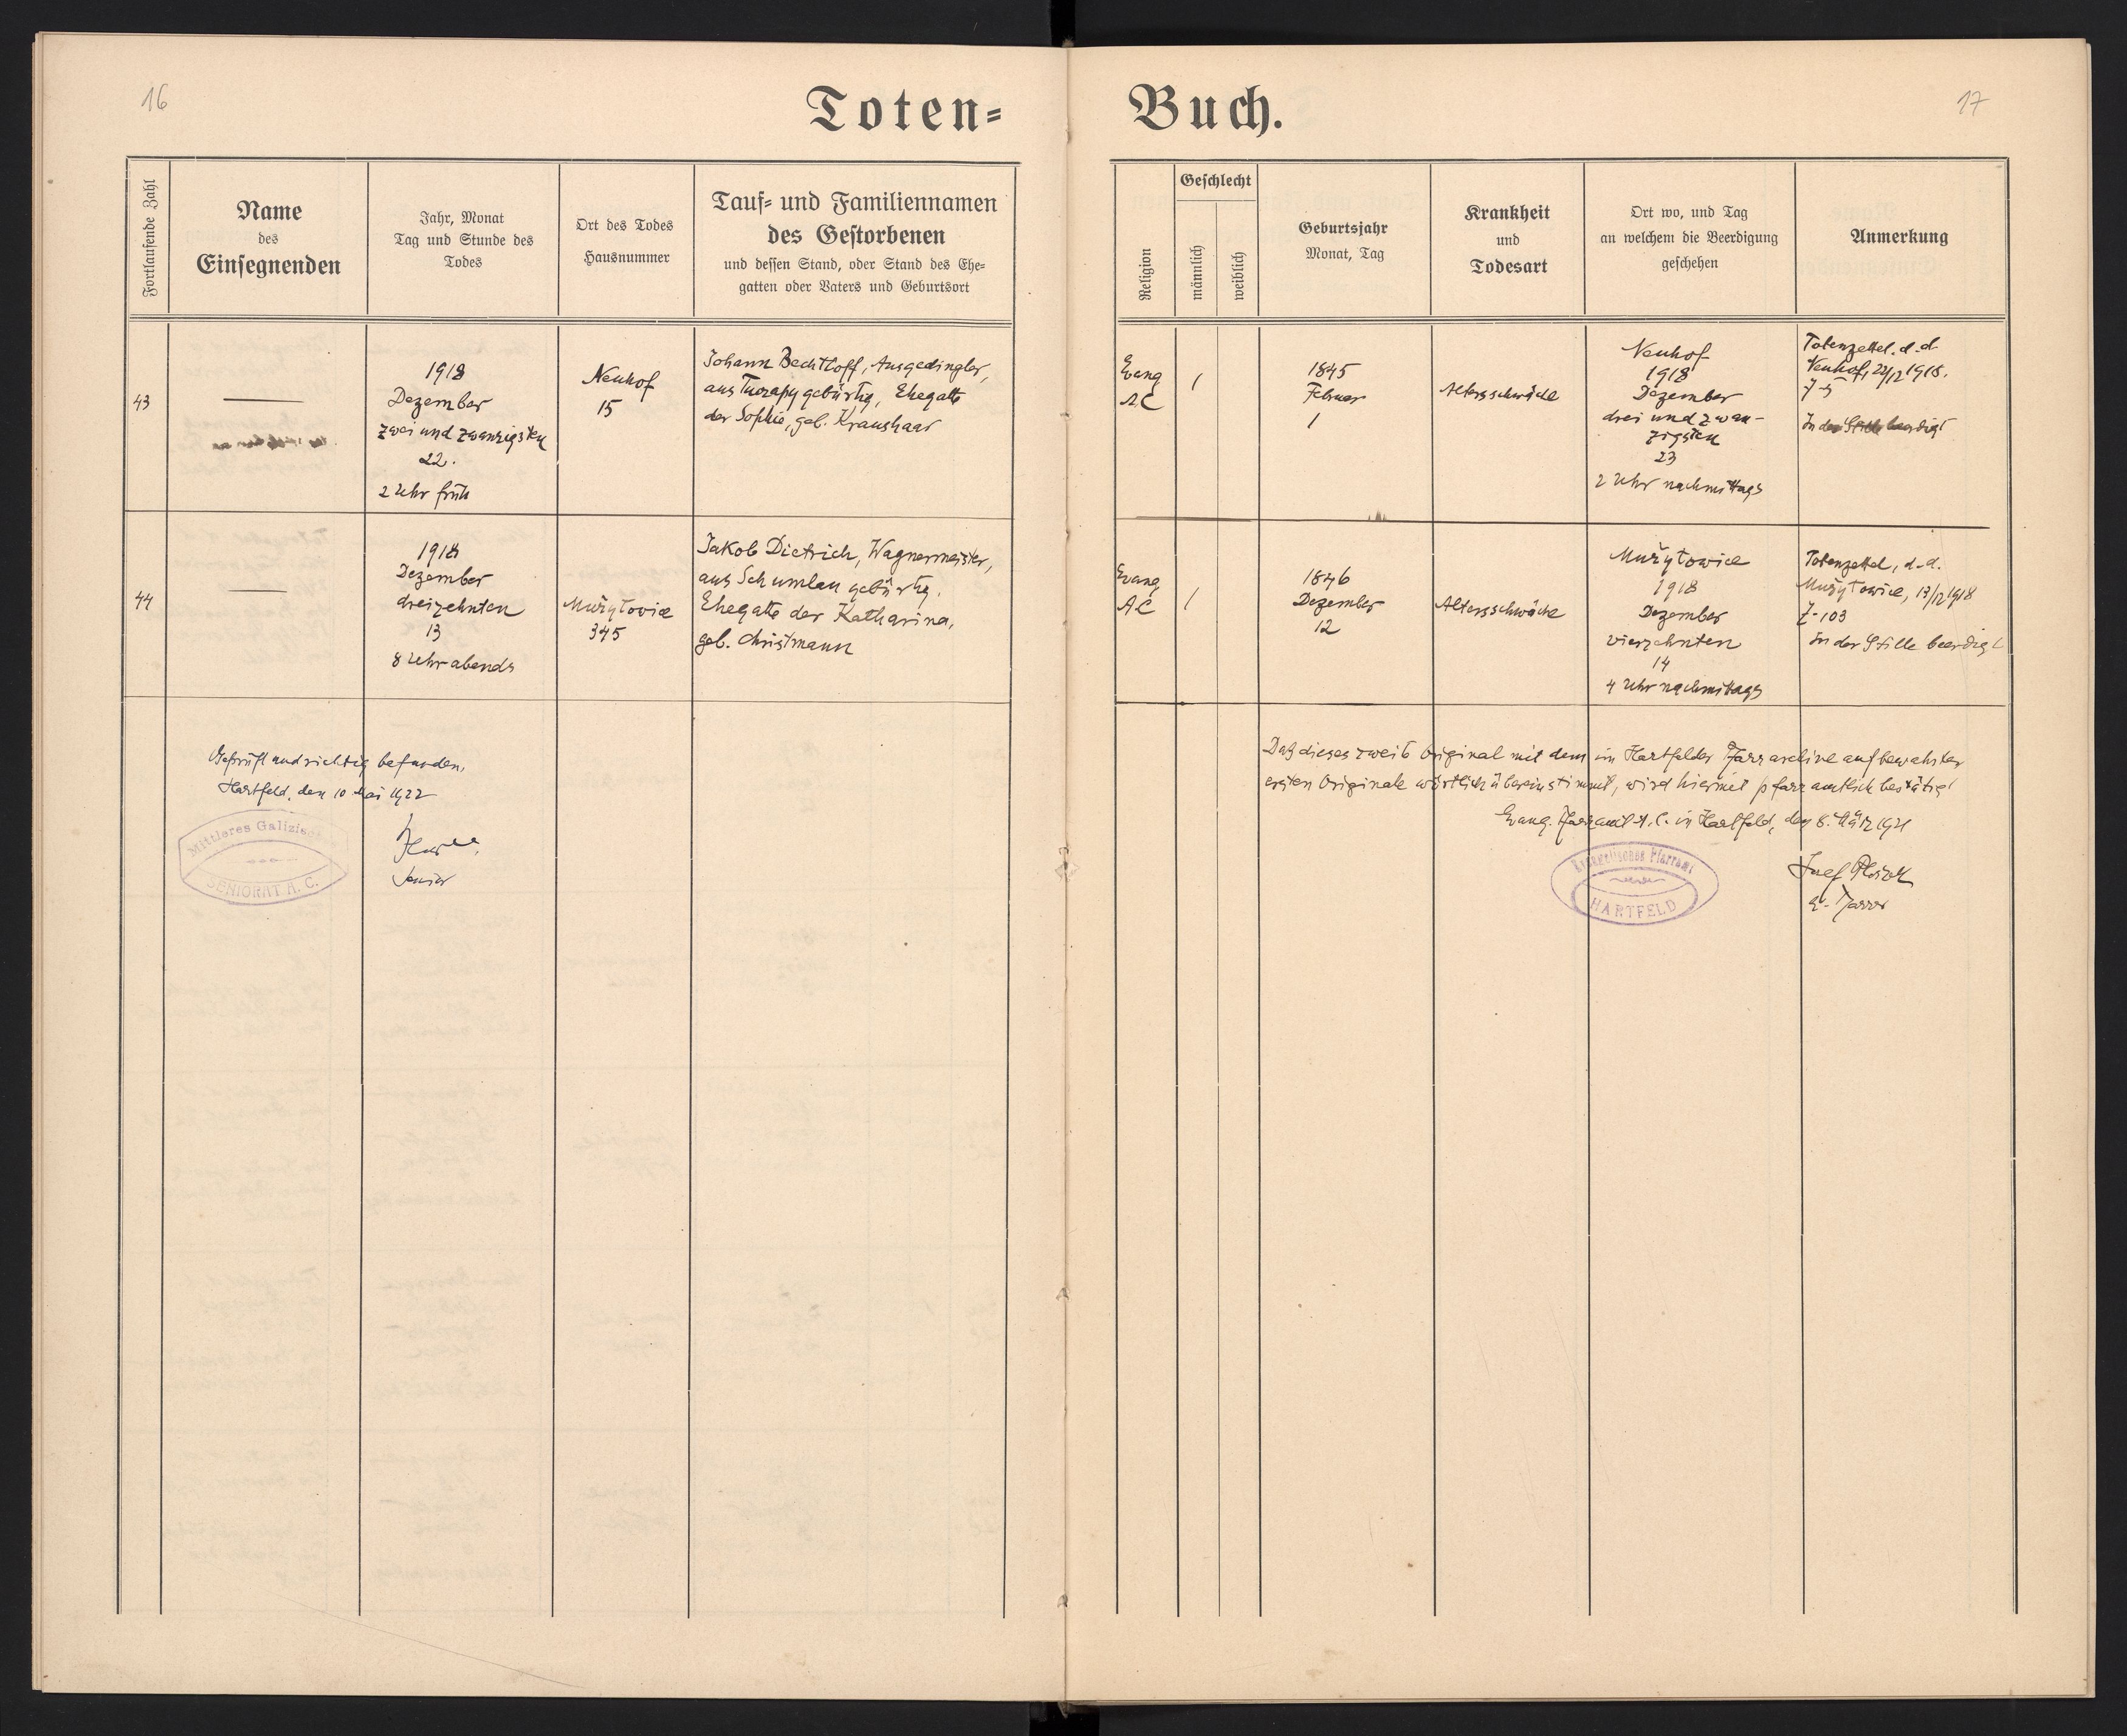 16
Toten=
Buch.
17
Fortlaufende Zahl
Name
des
Einsegnenden
Jahr, Monat
Tag und Stunde des
Todes
Ort des Todes
Hausnummer
Tauf= und Familiennamen
des Gestorbenen
und dessen Stand, oder Stand des Ehe=
gatten oder Vaters und Geburtsort
Religion
Geschlecht
männlich
weiblich
Geburtsjahr
Monat, Tag
Krankheit
und
Todesart
Ort wo, und Tag
an welchem die Beerdigung
geschehen
Anmerkung
43
1918
Dezember
zwei und zwanzigsten
22.
2 Uhr früh
Neuhof
15
Johann Bechtloff, Ausgedingler,
aus gebürtig, Ehegatte
der Sophie, geb. Kraushaar
Evang
AC
1
1845
Februar
1
Altersschwäche
Neuhof
1918
Dezember
drei und zwan-
zigsten
23
2 Uhr nachmittags
Totenzettel. d.d.
Neuhof, 22/12 1918.
Z-5
In der Stille beerdigt
44
1918
Dezember
dreizehnten
13
8 Uhr abends
Mużyłovice
345
Jakob Dietrich, Wagnermeister,
aus Schumlau gebürtig.
Ehegatte der Katharina,
geb. Christmann
Evang
AC
1
1846
Dezember
12
Altersschwäche
Mużyłowice
1918
Dezember
vierzehnten
14
4 Uhr nachmittags
Totenzettel, d.d.
Mużyłowice, 13/12 1918
Z-103
In der Stille beerdigt
Geprüft und richtig befunden.
Hartfeld, den 10 Mai 1922
Mittleres Galizisch
SENIORAT A. C.
Senior
Daß dieses zweite Original mit dem im Hartfelder Pfarrarchive aufbewahrten
ersten Originale wörtlich übereinstimmt, wird hiermit pfarramtlich bestätigt
Evang. Pfarramt A. C. in Hartfeld, den 8. März 1921
Evangelisches Pfarramt
HARTFELD
Josef
Pfarrer